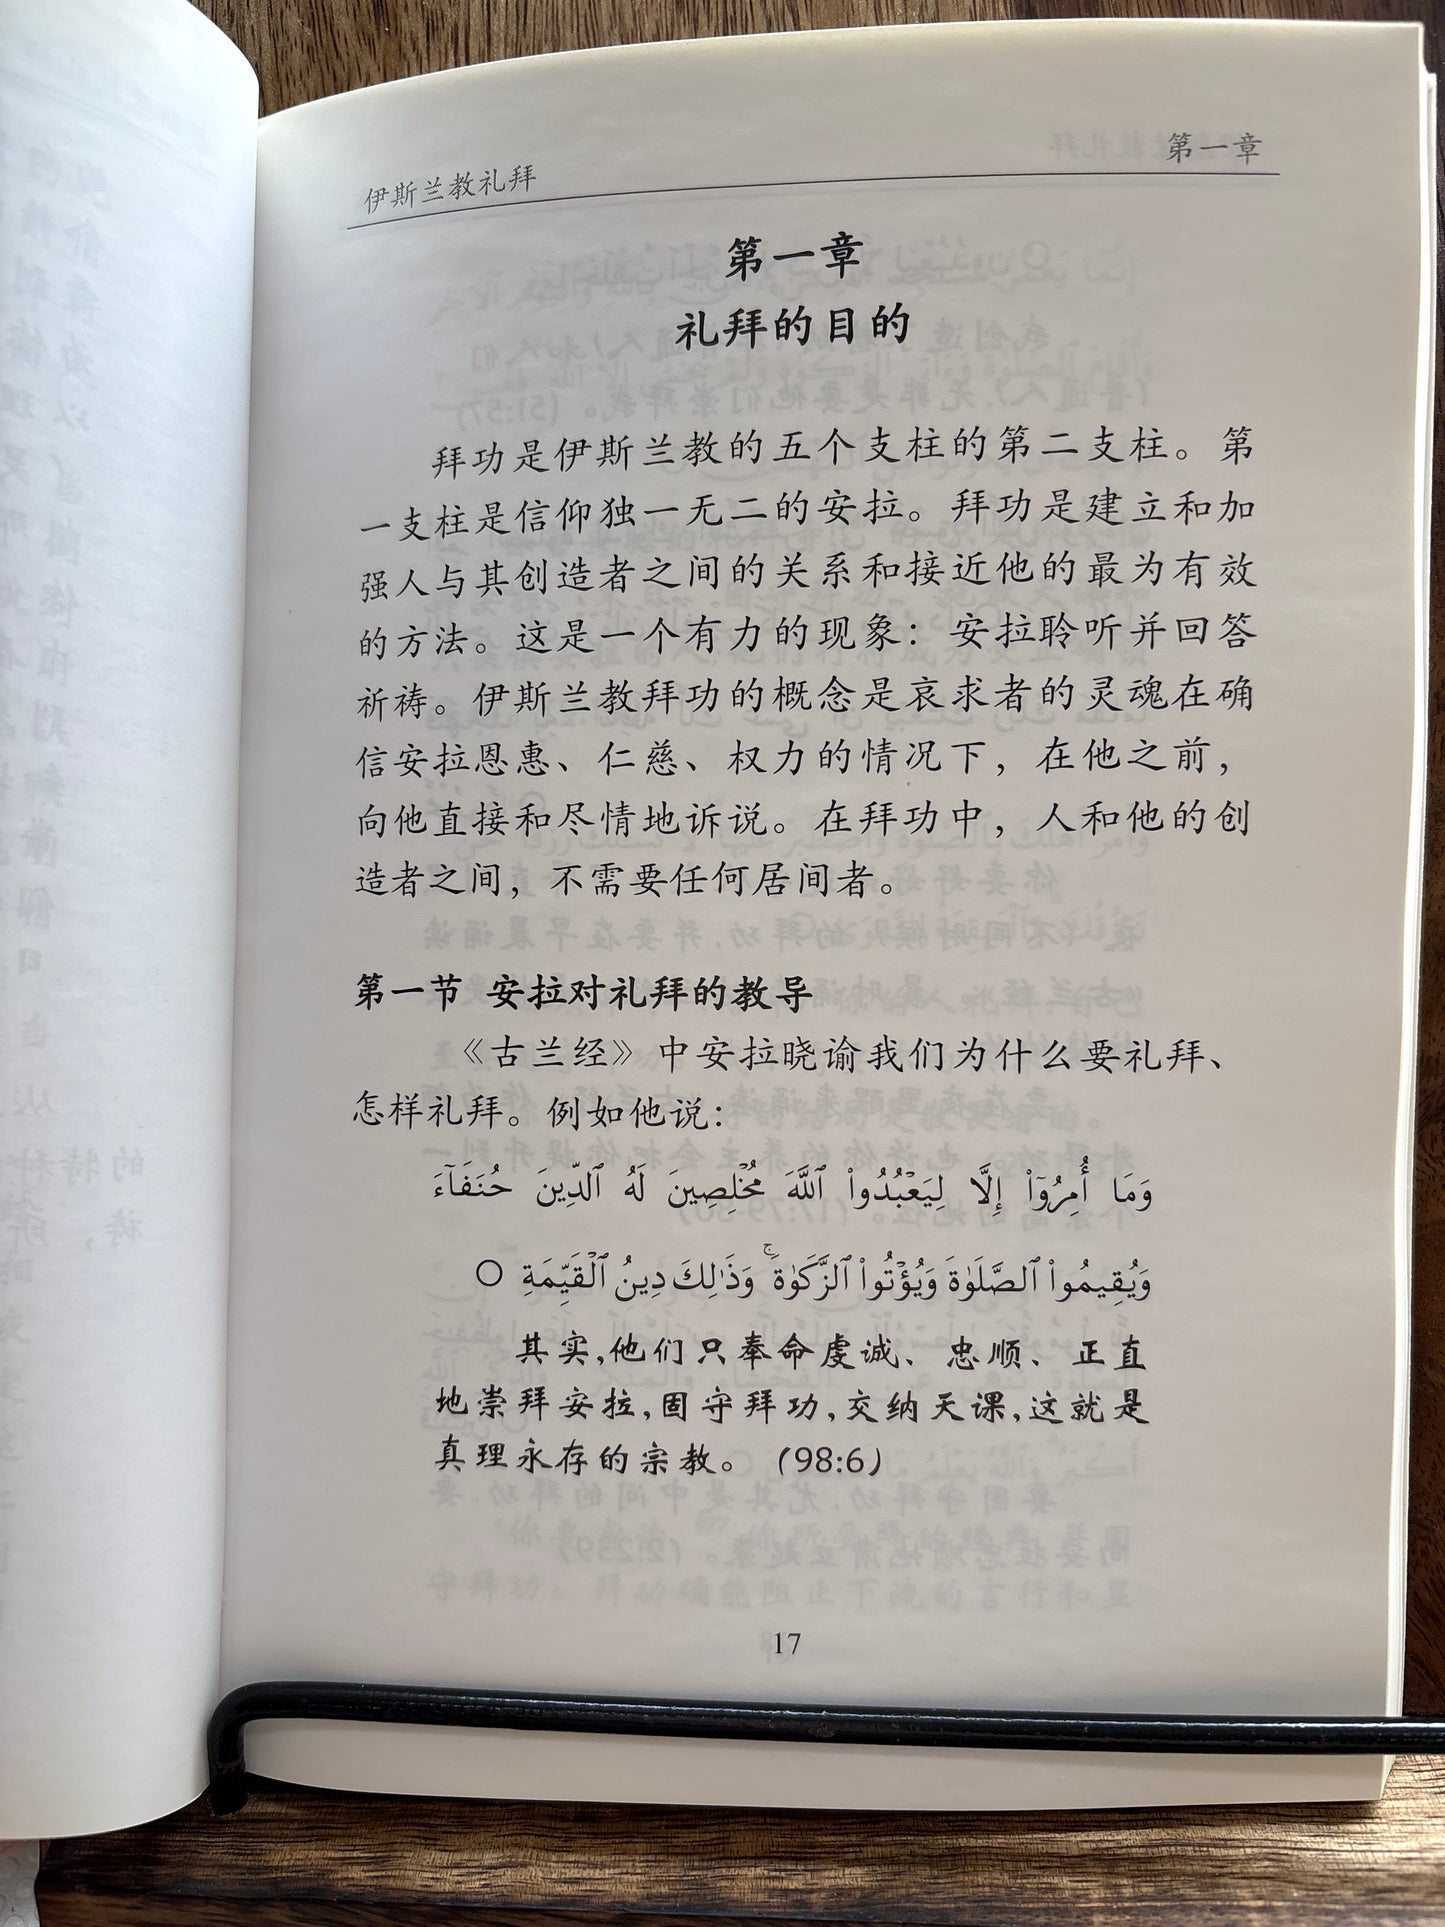 伊斯兰教礼拜
第一章
第一章
礼拜的目的
拜功是伊斯兰教的五个支柱的第二支柱。第
一支柱是信仰独一无二的安拉。拜功是建立和加
强人与其创造者之间的关系和接近他的最为有效
的方法。这是一个有力的现象：安拉聆听并回答
祈祷。伊斯兰教拜功的概念是哀求者的灵魂在确
信安拉恩惠、仁慈、权力的情况下，在他之前，
向他直接和尽情地诉说。在拜功中，人和他的创
造者之间，不需要任何居间者。
第一节 安拉对礼拜的教导
《古兰经》中安拉晓谕我们为什么要礼拜、
怎样礼拜。例如他说：
وَمَا أُمِرُوٓاْ إِلَّا لِيَعْبُدُواْ ٱللَّهَ مُخْلِصِينَ لَهُ ٱلدِّينَ حُنَفَآءَ
وَيُقِيمُواْ ٱلصَّلَوٰةَ وَيُؤْتُواْ ٱلزَّكَوٰةَ ۚ وَذَٰلِكَ دِينُ ٱلْقَيِّمَةِ ○
其实,他们只奉命虔诚、忠顺、正直
地崇拜安拉,固守拜功,交纳天课,这就是
真理永存的宗教。(98:6)
17